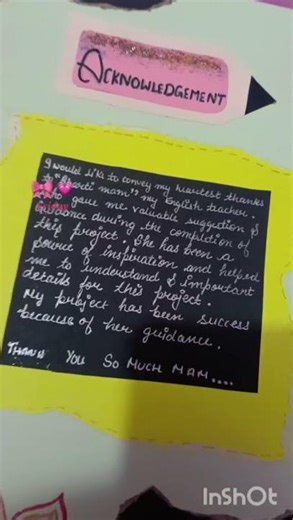 ACKNOWLEDGEMENT
I would like to convey my heartest thanks
to " mam" my English teacher.
who gave me valuable suggestion &
guidance during the completion of
this project. She has been a
source of inspiration and helped
me to understand & important
details for this project.
My project has been success
because of her guidance.
THANK YOU SO MUCH MAM....
InShOt